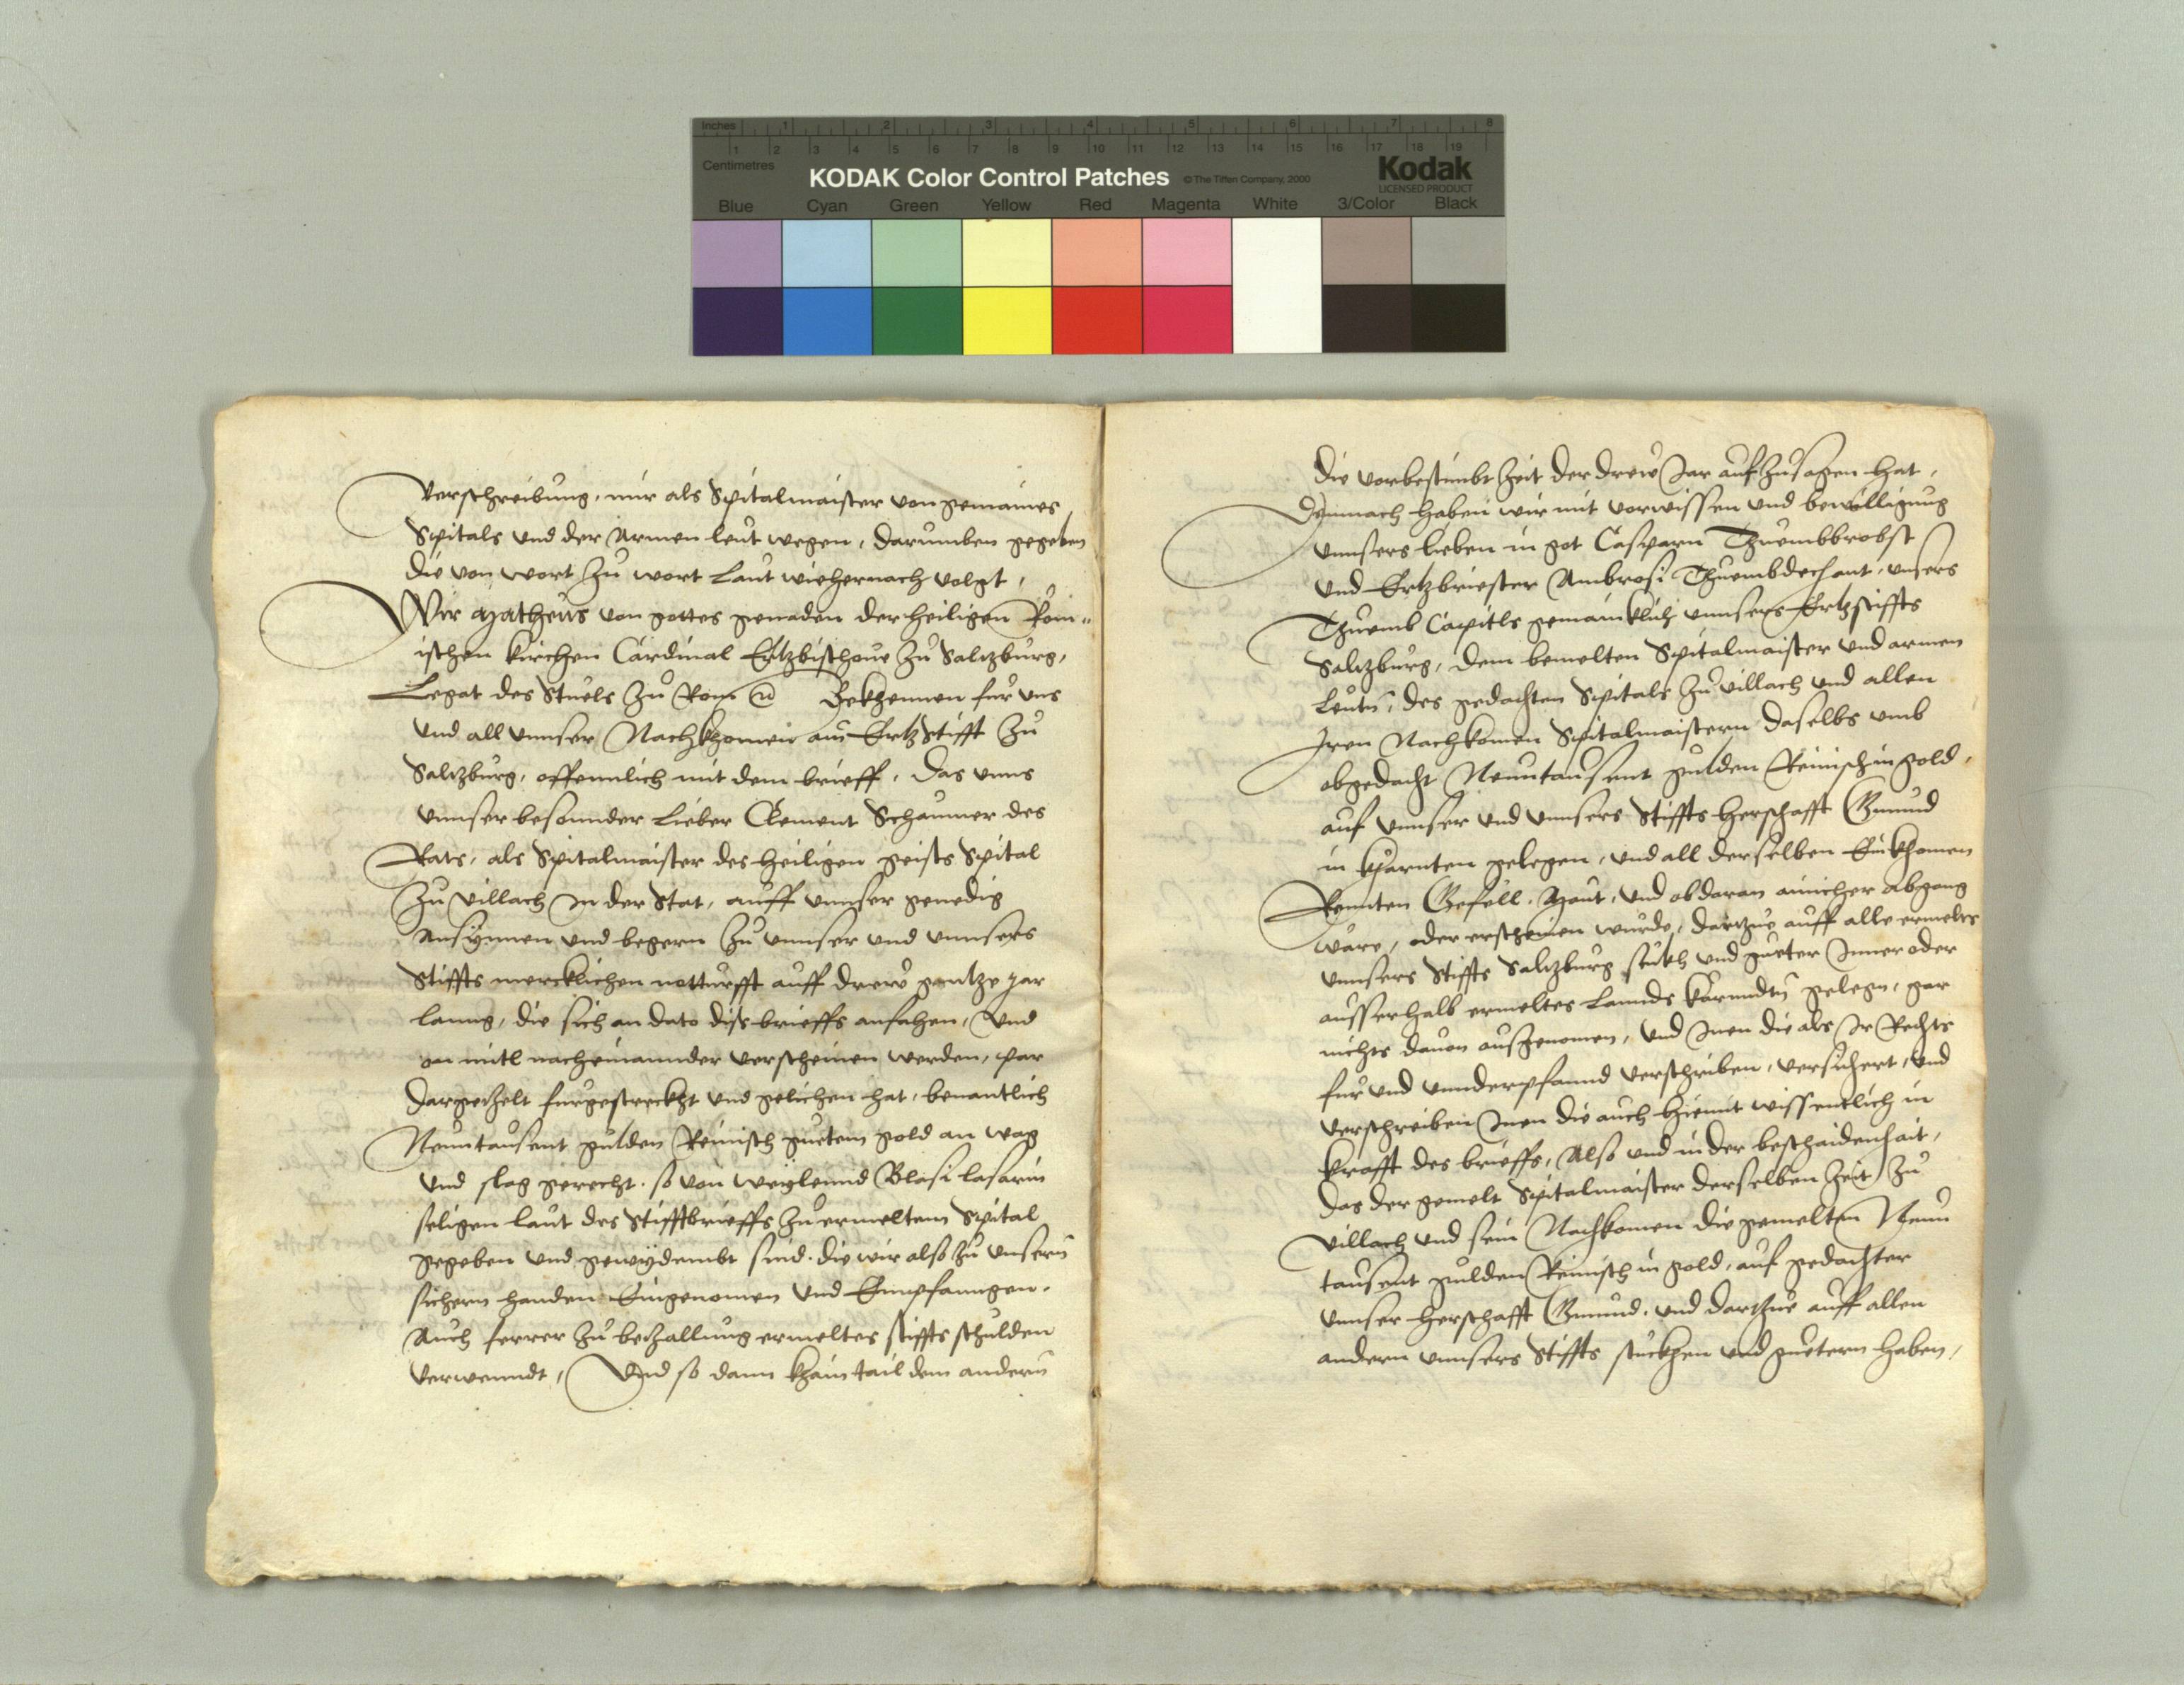 Inches 1 2 3 4 5 6 7 8
Centimetres 1 2 3 4 5 6 7 8 9 10 11 12 13 14 15 16 17 18 19
KODAK Color Control Patches © The Tiffen Company, 2000 Kodak
LICENSED PRODUCT
Blue Cyan Green Yellow Red Magenta White 3/Color Black
Verschreibung, mir als Spitalmaister von gemaines
Spitals und der Armen leut wegen, darumben gegeben
die von wort zu wort laut wie hernach volgt,
Wir Matheus von gottes genaden der heiligen Rom=
ischen kirchen Cardinal Ertzbischove zu Saltzburg,
Legat des Stuels zu Rom Bekhennen fur uns
und all unnser Nachkhomen am Ertzstifft zu
Saltzburg, offennlich mit dem brieff, das unns
unnser besonnder lieber Clement Schaumer des
Rats, als Spitalmaister des heiligen geists Spital
zu Villach in der Stat, auff unnser genedig
Ansynnen und begern zu unnser und unnsers
Stiffts mercklichen notturfft auff drew gantze jar
lanng, die sich an dato diss brieffs anfahen, und
on mitl nacheinannder verscheinen werden, par
dargezelt furgestreckht und gelichen hat, benantlich
Neuntausent gulden Reinisch guetem gold an wag
und slag gerecht, so von weylennd Blasi lasarin
seligen laut des Stifftbrieffs zu ermeltem Spital
gegeben und gewydembt sind, die wir also zu unsern
sichern handen Eingenomen und Empfanngen,
Auch ferrer zu bezallung ermeltes stiffts schulden
verwenndt, Und so dann khain tail dem andern
die vorbestimbt zeit der drew Jar aufzusagen hat,
Demnach haben wir mit vorwissen und bewilligung
unnsers lieben in got Casparn Thuembbrobst
und Ertzbriester Ambrosi Thuembdechant, unsers
Thuemb Capitls gemainklich unnsers Ertzstiffts
Saltzburg, dem bemelten Spitalmaister und armen
Leutn, des gedachten Spitals zu Villach und allen
Iren Nachkomen Spitalmaistern daselbs umb
obgedacht Neuntausent gulden Reinisch in gold,
auf unnser und unnsers Stiffts herschafft Gmund
in kharnten gelegen, und all derselben Einkhomen
Rennten Gefell, Maut, und ob daran ainicher abgang
ware, oder erscheinen wurde, dartzue auff alle ermelts
unnsers Stiffts Saltzburg stukh und gueter Inner oder
ausserhalb ermeltes Lannds karnndtn gelegn, gar
nichts davon ausgenomen, und Inen die als Ir Rechts
fur und unnderpfannd verschriben, versichert, und
verschreiben Inen die auch hiemit wissentlich in
krafft des brieffs, Also und in der beschaidenhait,
das der gemelt Spitalmaister derselben Zeit zu
Villach und sein Nachkomen die gemelten Neun
tausent gulden Reinisch in gold, auf gedachter
unnser herschafft Gmund, und dartzue auff allen
andern unnsers Stiffts stuckhen und guetern haben,